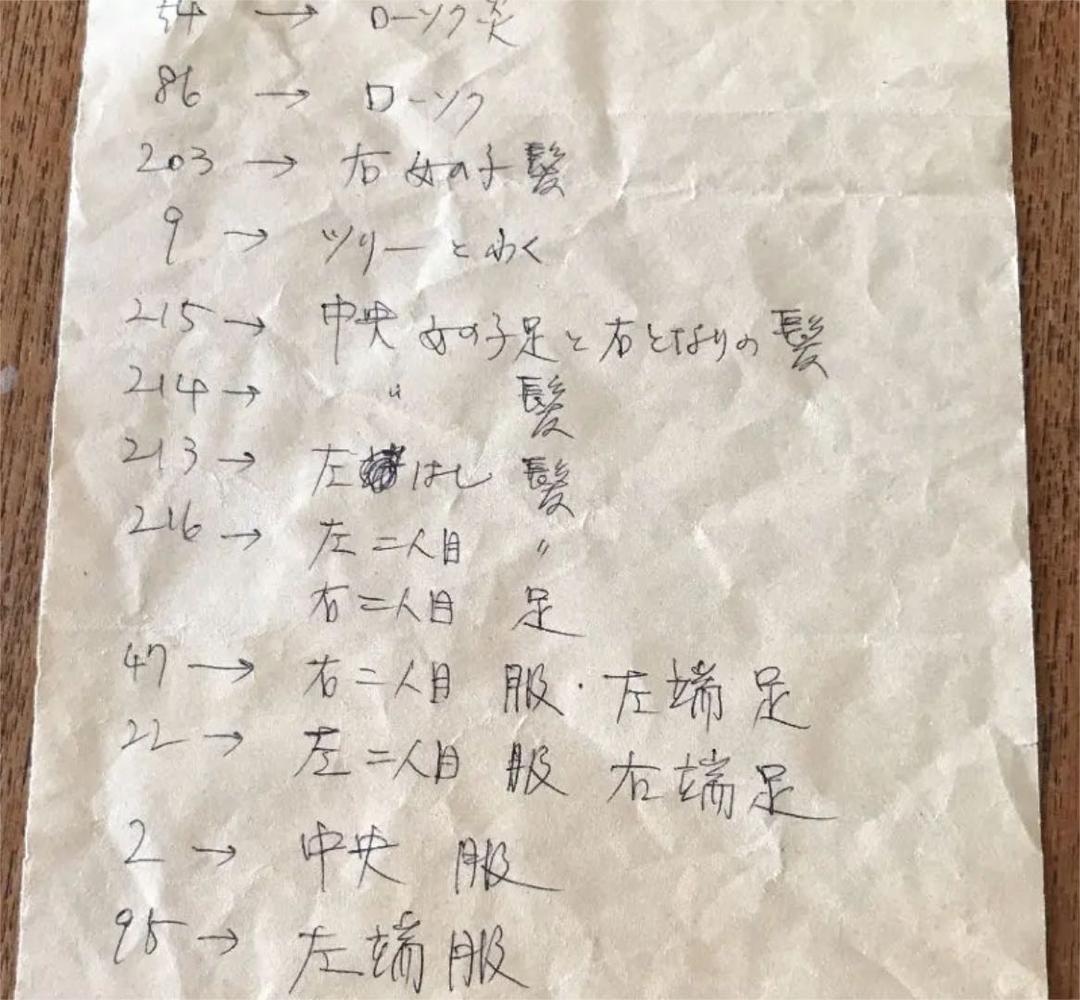 54 → ローソク炎
86 → ローソク
203 → 右 女の子 髪
9 → ツリーとわく
215 → 中央 女の子足と右となりの髪
214 → 〃 髪
213 → 左はし 髪
216 → 左二人目 〃
右二人目 足
47 → 右二人目 服・左端 足
22 → 左二人目 服 右端 足
2 → 中央 服
95 → 左端 服